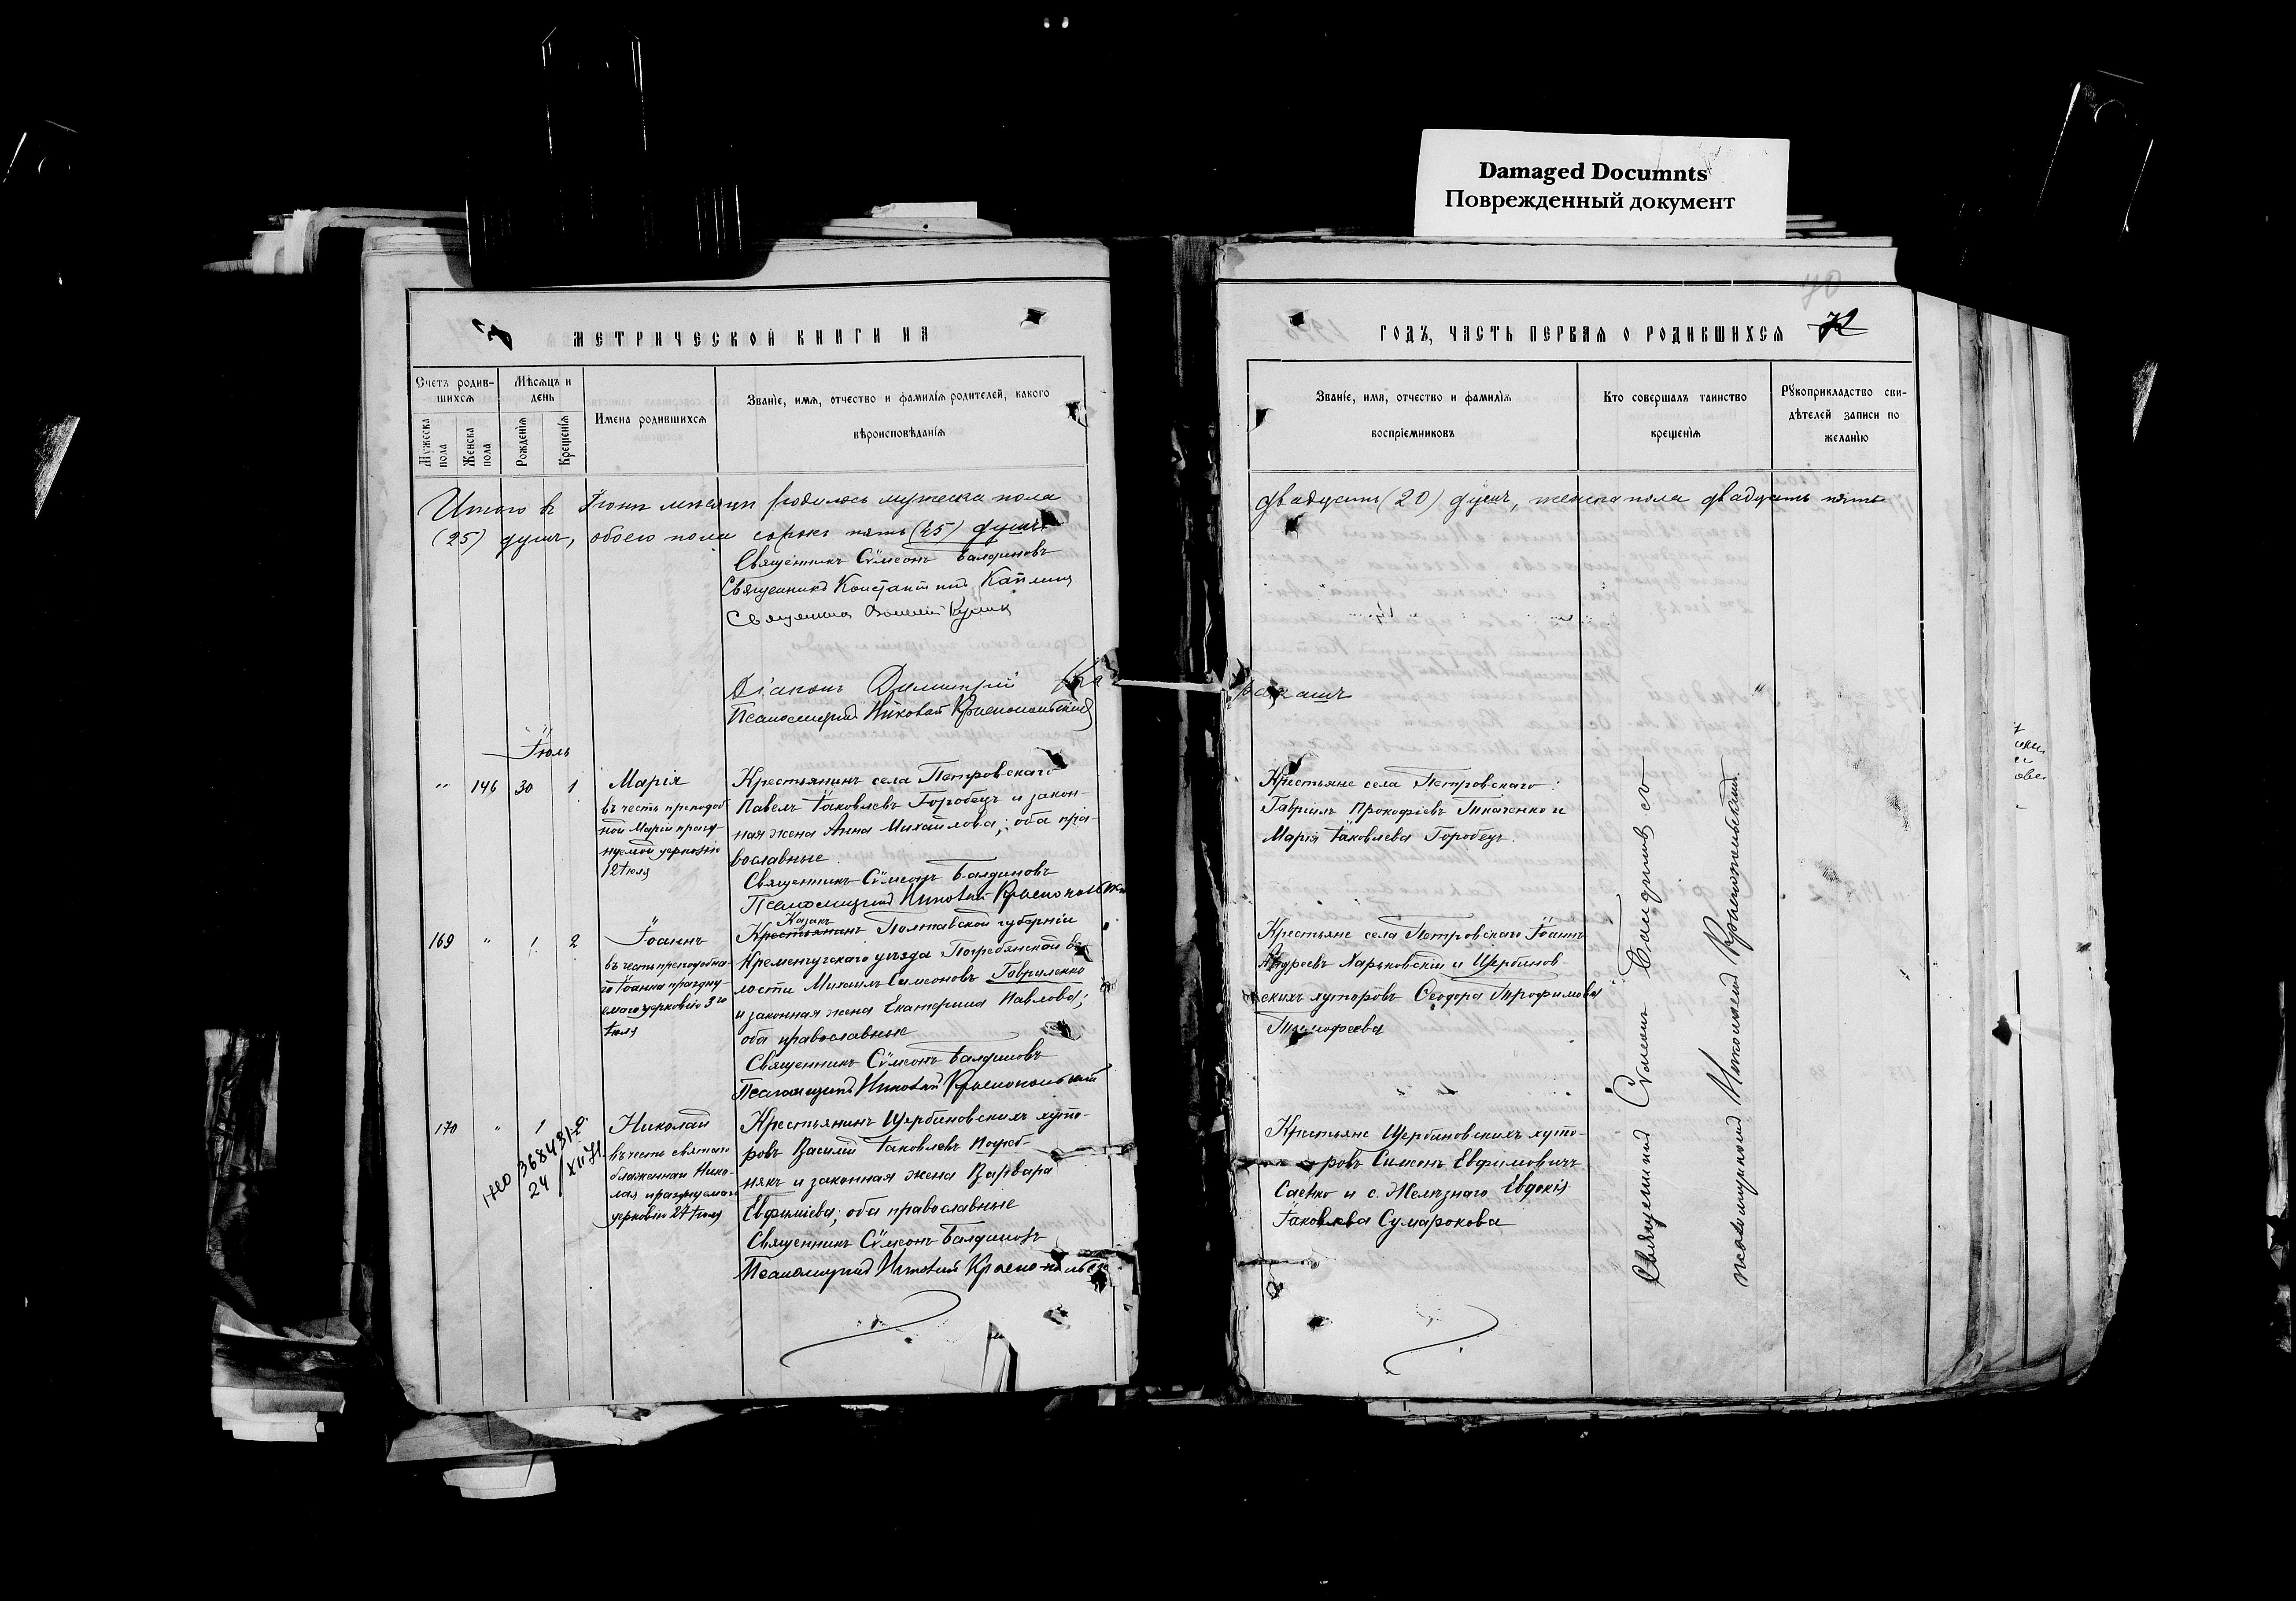 Damaged Documnts
Поврежденный документ
70
МЕТРИЧЕСКОЙ КНИГИ НА
Счетъ родив-
шихся
Мѣсяцъ и
день
Мужеска
пола
Женска
пола
Рожденія
Крещенія
Имена родившихся
Званіе, имя, отчество и фамилія родителей, какого
вѣроисповѣданія
Итого въ Іюнѣ мѣсяцѣ родилось мужеска пола
(25) душъ, обоего пола сорокъ пять (45) душъ
Священникъ Сѵмеонъ Балдиновъ
Священникъ Константинъ
Діаконъ Димитрій
Псаломщикъ Николай Краснопольскій
Іюль
" 146 30 1 Марія
въ честь преподоб
ной Маріи празд-
нуемой церковію
12 Іюля
Крестьянинъ села Петровскаго
Павелъ Іаковлевъ Горобецъ и закон-
ная жена Анна Михайлова; оба пра-
вославные
Священникъ Сѵмеонъ Балдиновъ
Псаломщикъ Николай Краснопольскій
169 " 1 2 Іоаннъ
въ честь преподобна-
го Іоанна праздну-
емаго церковію 3го
Іюля
Казакъ
Крестьянинъ Полтавской губерніи
Кременчугскаго уѣзда Погребянской во-
лости Михаилъ Симеоновъ Гавриленко
и законная жена Екатерина Павлова;
оба православные
Священникъ Сѵмеонъ Балдиновъ
Псаломщикъ Николай Краснопольскій
170 " 1 2 Николай
въ честь святаго
блаженнаго Нико-
лая празднуемаго
церковію 27 Іюля
368431
24/XII 71
Крестьянинъ Щербиновскихъ хуто-
ровъ Василій Іаковлевъ Погреб-
някъ и законная жена Варвара
Евфиміева; оба православные
Священникъ Сѵмеонъ Балдиновъ
Псаломщикъ Николай Краснопольскій
ГОДЪ, ЧАСТЬ ПЕРВАЯ О РОДИВШИХСЯ
72
Званіе, имя, отчество и фамилія
воспріемниковъ
Кто совершалъ таинство
крещенія
Рукоприкладство сви-
дѣтелей записи по
желанію
двадцать (20) душъ, женска пола двадцать пять
Крестьяне села Петровскаго:
Гавріилъ Прокофіевъ Ткаченко и
Марія Іаковлева Горобецъ.
Крестьяне села Петровскаго Іоаннъ
Андреевъ Харьковскій и Щербинов-
скихъ хуторовъ Ѳеодора Трофимова
Тимофеева
Крестьяне Щербиновскихъ хуто-
ровъ Симеонъ Евфимовичъ
Саенко и с. Желѣзнаго Евдокія
Іаковлева Сумарокова
Священникъ Сѵмеонъ Балдиновъ со
псаломщикомъ Николаемъ Краснопольскимъ